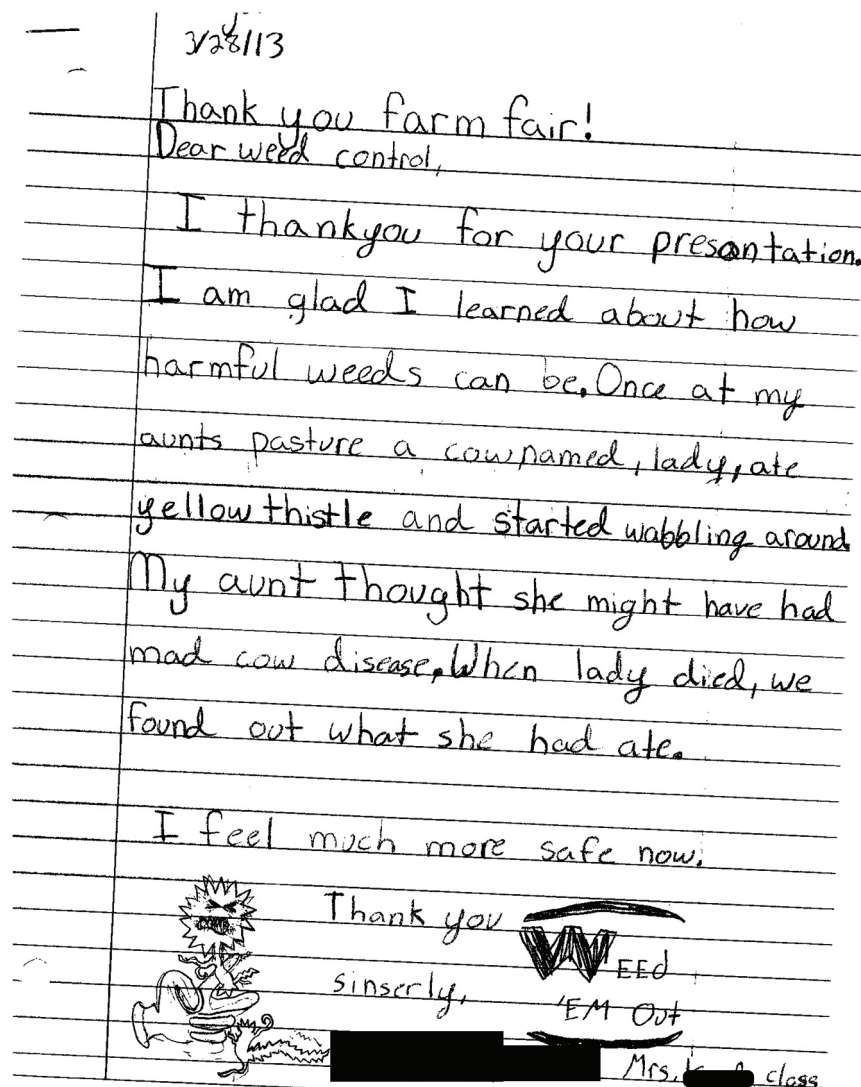 3/28/13
Thank you farm fair!
Dear weed control,
I thankyou for your presantation.
I am glad I learned about how
harmful weeds can be. Once at my
aunts pasture a cow named, lady, ate
yellow thistle and started wabbling around
My aunt thought she might have had
mad cow disease. When lady died, we
found out what she had ate.
I feel much more safe now.
Thank you
sinserly,
WEEd
'EM Out
Mrs. class